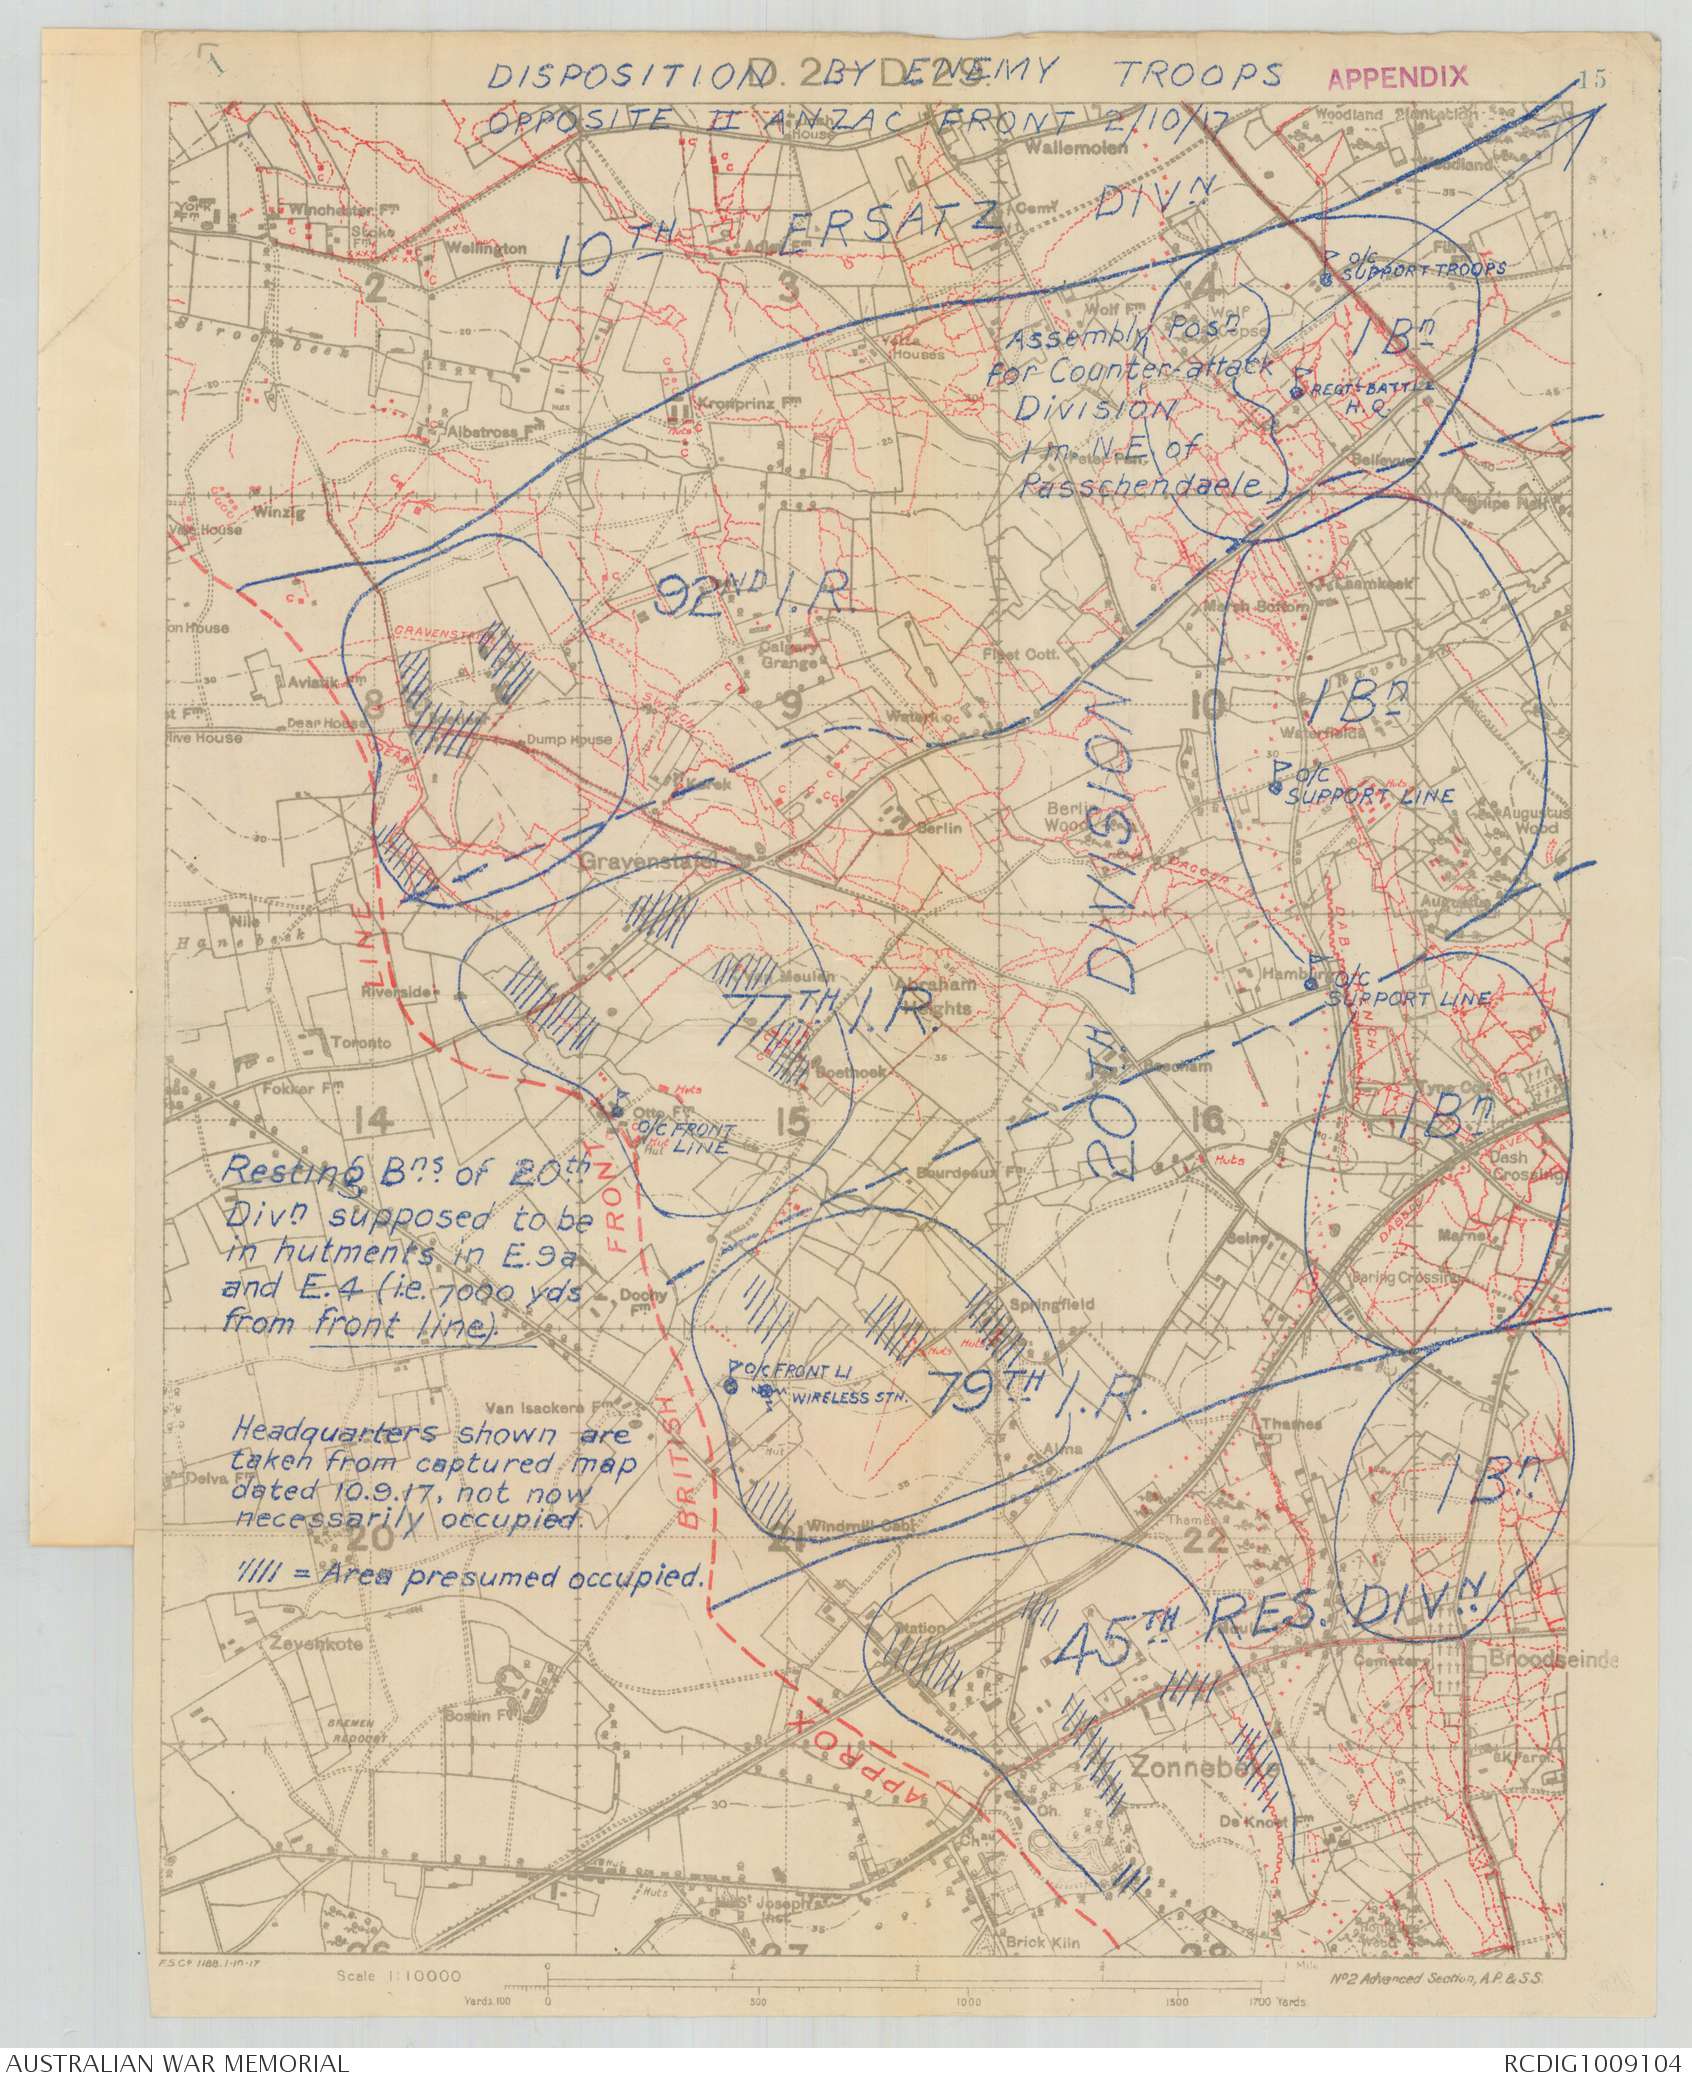 DISPOSITION BY ENEMY TROOPS
OPPOSITE II ANZAC FRONT 2/10/17
APPENDIX
15
1
Woodland Plantation
Wallemolen
Woodland
York Fm
Winchester Fm
Stoke Fm
Wellington
Adler Fm
Cemy
10TH ERSATZ DIVN
2
3
4
O/C
SUPPORT TROOPS
Stroombeek
Wolf Fm
Wolf Copse
Yetta Houses
Assembly Posn
for Counter-attack
Division
1 m. N.E. of
Passchendaele
1 Bn
REGTL BATTLE
H.Q.
Kronprinz Fm
Huts
Albatross Fm
Peter Pan
Bellevue
Snipe Hall
Winzig
Vale House
92ND I.R.
Laamkeek
Marsh Bottom
GRAVENSTAFEL
SWITCH
Calgary Grange
Fleet Cott.
Ravebeek
Aviatik Fm
8
9
10
1 Bn
Dear House
Dump House
Waterloo
Waterfields
O/C
SUPPORT LINE
Korek
Berlin
Berlin Wood
Augustus Wood
Gravenstafel
DAGGER TR
Augustus
20TH DIVISION
Nile
Hanebeek
LINE
Riverside
Van Meulen
Abraham Heights
Hamburg
O/C
SUPPORT LINE
77TH I.R.
Toronto
Boethoek
Beecham
Tyne Cot
Fokker Fm
Huts
Otto Fm
14
15
16
1 Bn
O/C FRONT
LINE
Hut
Huts
Dash Crossing
Bordeaux Fm
Resting Bns of 20th
Divn supposed to be
in hutments in E.9a
and E.4 (i.e. 7000 yds
from front line).
FRONT
Seine
Marne
Daring Crossing
Dochy Fm
Springfield
Huts
Huts
O/C FRONT LI
WIRELESS STN.
79TH I.R.
Van Isackere Fm
BRITISH
Thames
Alma
Hut
1 Bn
Headquarters shown are
taken from captured map
dated 10.9.17, not now
necessarily occupied.
Delva Fm
Windmill Cabt
Thames
20
21
22
//// = Area presumed occupied.
Station
45TH RES. DIVN
Zevenkote
Cemetery
Broodseinde
Bostin Fm
BREMEN REDOUBT
APPROX
Zonnebeke
De Knoet Fm
Ch.
Chau
Hut
Huts
St Joseph's Inst.
Brick Kiln
26
27
28
F.S.Co 1188.1-10-17
Scale 1:10000
1 Mile
No2 Advanced Section, A.P. & S.S.
Yards 100 0 500 1000 1500 1700 Yards
AUSTRALIAN WAR MEMORIAL
RCDIG1009104